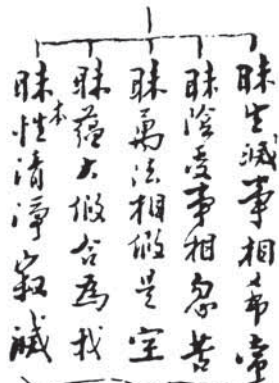 昧生滅事相希常
昧陰受事相忽苦
昧萬法相假是空
昧蘊大假合為我
昧本性清淨寂滅